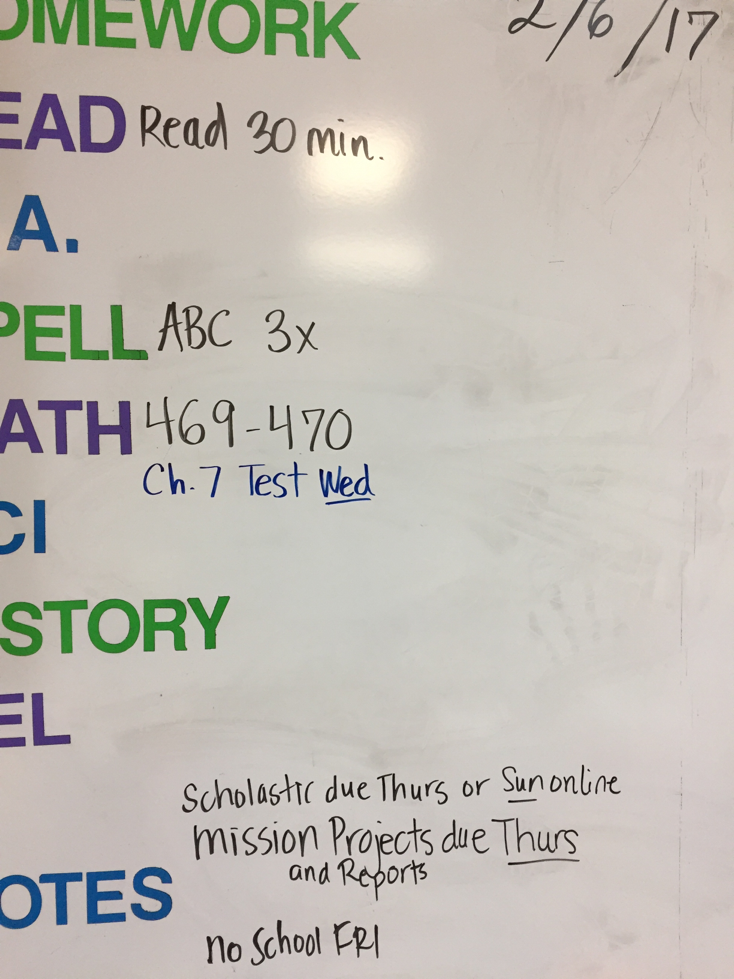 OMEWORK 2/6/17
EAD Read 30 min.
A.
PELL ABC 3x
ATH 469-470
Ch. 7 Test Wed
CI
STORY
EL
Scholastic due Thurs or Sun online
Mission Projects due Thurs
and Reports
OTES
no School FRI